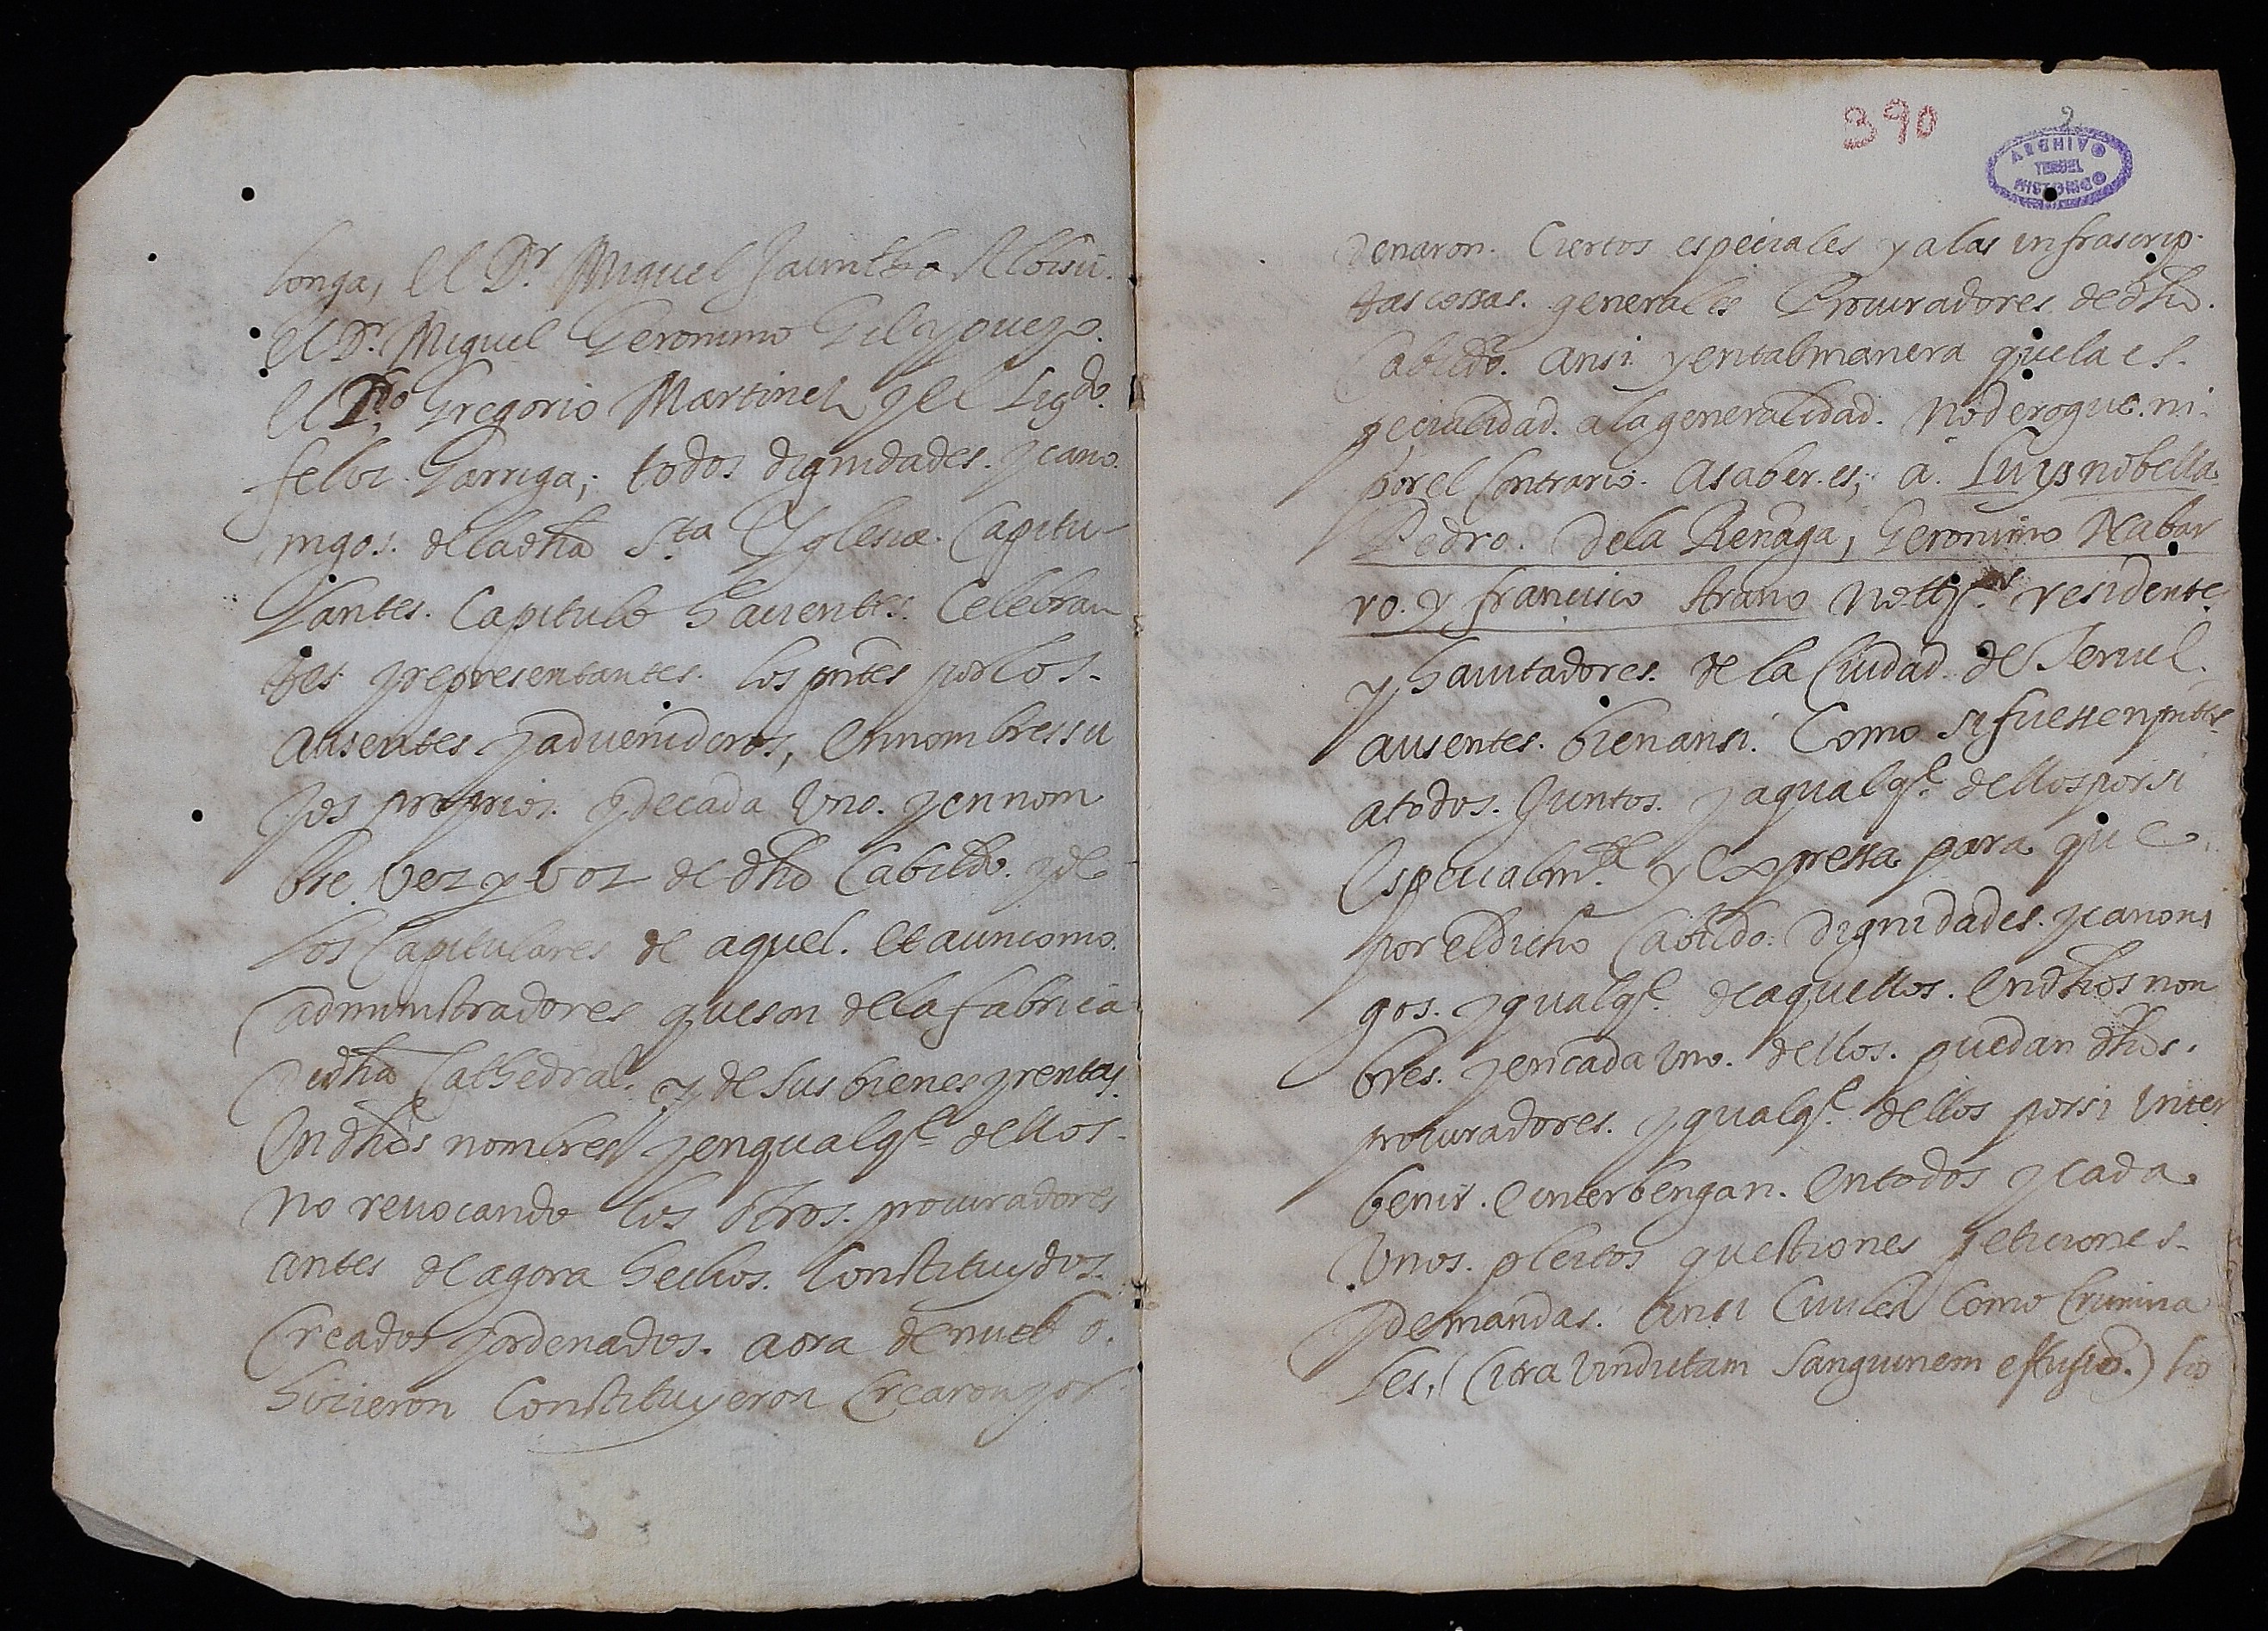 longa, el Dr. Miguel Jacintho Aloisu.
el Dr. Miguel Geronimo Gil y
el Gregorio Martinez y el Ligdo.
felix Garriga; todos dignidades. y cano
nigos. de la dha Sta Yglesia. Capitu-
lantes. Capitulo hacientes. Celebran
tes y representantes. los pntes por los-
Ausentes y advenideros, en nombres su
yos proprios. y de cada Uno. y en nom
bre. Vez y Voz de dho Cabildo. y de
los Capitulares de aquel. et aun como.
administradores que son de la fabrica
dha Cathedral. y de sus bienes y rentas.
En dhos nombres y en qualqr dellos-
No revocando los otros. procuradores
antes de agora hechos. Constituydos.
Creados y ordenados. aora de nuebo.
hicieron Constituyeron Crearon y or
denaron. Ciertos especiales y a las infrascrip-
tas cossas. generales Procuradores de dho.
Cabildo. ansi y en tal manera que la es-
pecialidad. a la generalidad. no derogue. ni-
por el Contrario. Asaber. es; a. Luys nobella
Pedro. de la Renaga, Geronimo Nabar
ro. y francisco residente
y havitadores. de la Ciudad. de Teruel.
ausentes. bien ansi. Como si fuessen pntes
a todos. Juntos. y a qualqr dellos por si
Especialmte y Expressa para que
por el dicho Cabildo: dignidades. y canoni
gos. y qualqr de aquellos. En dhos nom
bres. y en cada Uno. dellos. puedan dhos.
procuradores. y qualqr dellos por si inter
benir. e interbengan. En todos y cada
Unos. pleitos questiones peticiones-
y demandas. ansi Civiles Como Crimina
les, (Citra Vindictam Sanguinem effusio.) ho
390
2
ARCHIVO
TERUEL
HISTORICO